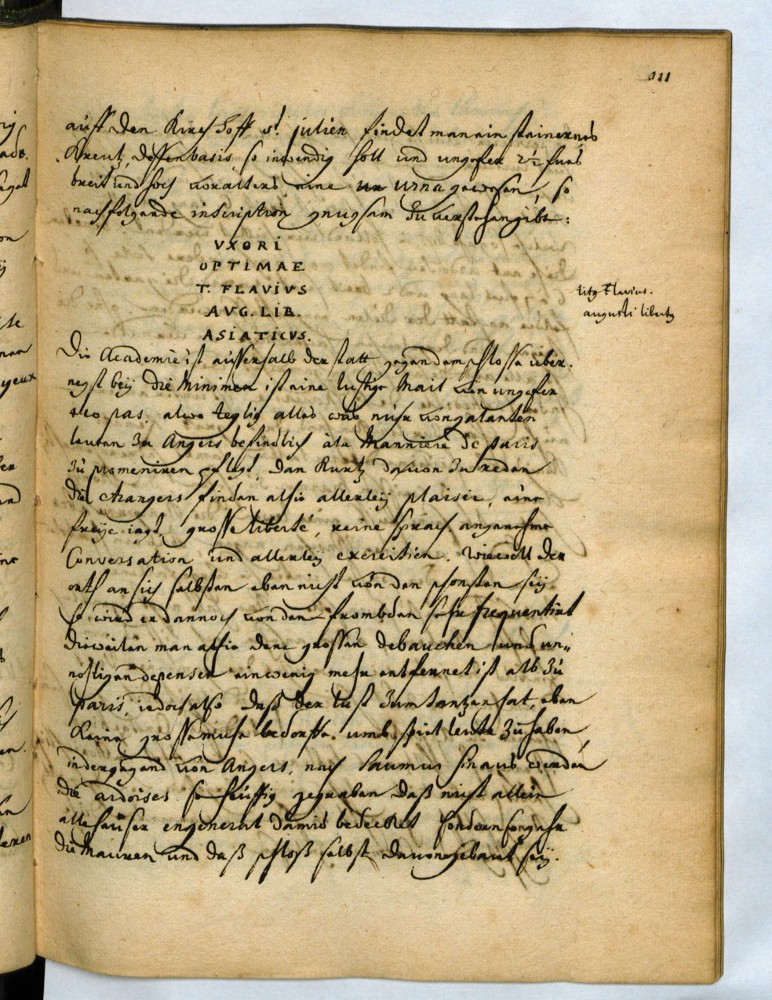 111
auff den Kirchhoff st. julien findet man ein steinernes
Kreutz, dessen basis, so inwendig holl und ungefer 2½ schus
breit und hoch vor alters eine ur urna gewesen, so
nachfolgende inscription gnugsam zu verstehen gibt:
VXORI
OPTIMAE
T. FLAVIVS
AVG. LIB.
ASIATICVS.
titq Flavius.
augusti libertq
Die Academie ist ausserhalb der statt gegen dem schlosse über.
negst beÿ die Minimen ist eine lustige Mail von ungefer
400 pas, alwo teglig alles was nuhr von galanten
leuten zu Angers befindlich à la Manniere de paris
zu promeniren pflegt, dan Kurtz davon zu reden
die etrangers finden alhie allerleÿ plaisir, eine
freÿe iagt, grosse liberté, reine sprach, angenehme
Conversation und allerleÿ exercitien. wiewoll der
orth an sich selbsten eben nicht von den schonsten seÿ
so wird er dannoch von den frembden sehr frequentirt
dieweilen man alhie dene grossen debauchen und un„
nöhtigen depensen ein wenig mehr entfernet ist alß zu
paris, iedoch also daß der lust zum tantzen hat, eben
keine grosse mühe bedorffte, umb spiel leute zu haben,
in der gegend von Angers, nach Saumur hinaus werden
die ardoises so heüffig gegraben daß nicht allein
alle heuser engeneral damit bedecket sondern so gahr
die Mauren und daß schloß selbst davon gebaut seÿ.